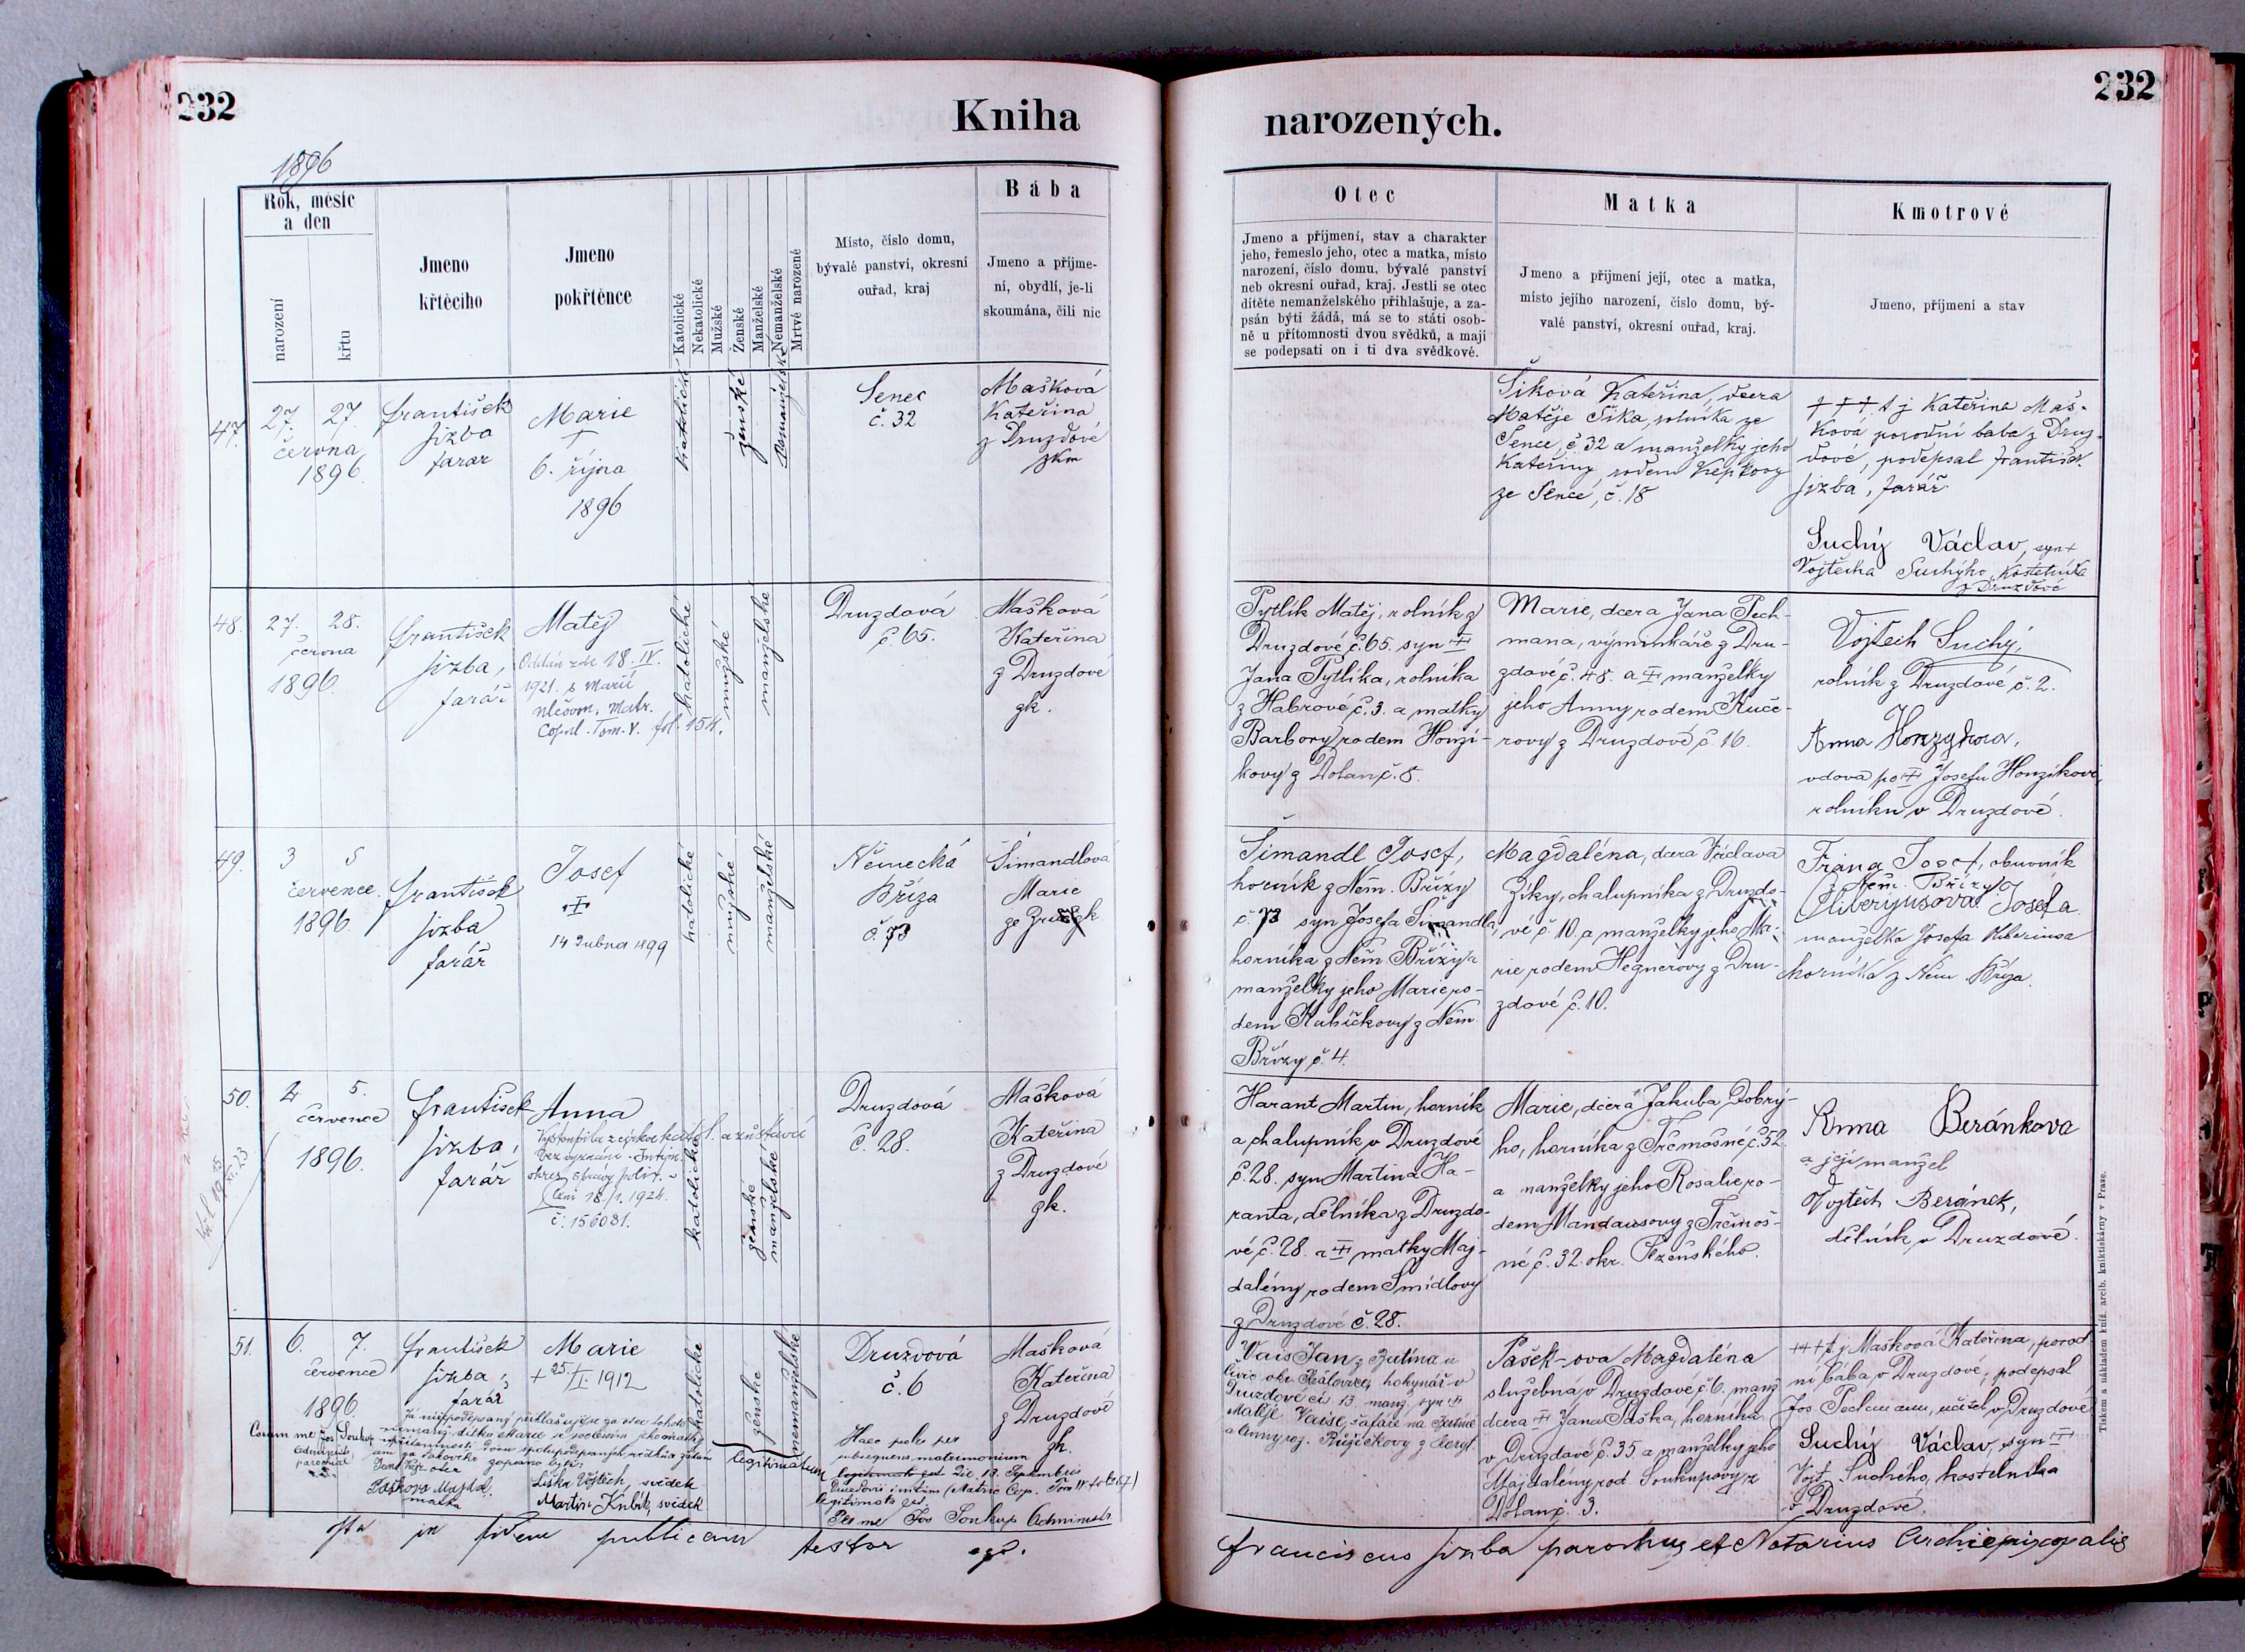 232
Kniha
1896
Rok, měsíc
a den
narození
křtu
Jmeno
křtěcího
Jmeno
pokřtěnce
Katolické
Nekatolické
Mužské
Ženské
Manželské
Nemanželské
Mrtvě narozené
Místo, číslo domu,
bývalé panství, okresní
ouřad, kraj
Bába
Jmeno a příjme-
ní, obydlí, je-li
skoumána, čili nic
47.
27. 27.
června
1896.
František
Jizba
farář
Marie
†
6. října
1896
katolické
ženské
Nemanželské
Senec
č. 32
Mašková
Kateřina
z Druzdové
zkm
48.
27. 28.
června
1896.
František
Jizba,
farář
Matěj
Oddán zde 18. IV.
1921. s Marií
Matr.
Copul. Tom. V. fol. 154.
katolické
mužské
manželské
Druzdová
č. 65.
Mašková
Kateřina
z Druzdové
gk.
49.
3 5
července
1896.
František
Jizba
farář
Josef
14 dubna 1899
katolické
mužské
manželské
Německá
Bříza
č. 73
Šimandlová
Marie
ze
gk
50.
2 5.
července
1896.
František
Jizba,
farář
Anna
Vystoupila z církve katol. a zůstává
bez vyznání. Intim.
okres. správy polit. v
Plzni 18./1. 1924.
č: 156081.
katolické
ženské
manželské
Druzdová
č. 28.
Mašková
Kateřina
z Druzdové
gk.
51.
6. 7.
července
1896.
František
Jizba,
farář
Marie
+ 25./I 1912
katolické
ženské
nemanželské
legitimatum
Druzdová
č. 6
Mašková
Kateřina
z Druzdové
gk.
Já níže podepsaný přihlašuji se za otce tohoto
nemanž. dítka Marie se svolením jeho matky
v přítomnosti dvou spolupodepsaných svědků a žádám
za takového zapsáno bylo:
Coram me Jos Soukup
Administr.
parochiae
Jan Vais otec
Pašková Majdal.
matka
Liška Vojtěch, svědek
Martin Kubík, svědek
Haec proles per
subsequens matrimonium
die 10. Septembris
legitimata est.
Per me Jos Soukup Administr
Ita in fidem publicam testor ego.
232
narozených.
Otec
Jmeno a příjmení, stav a charakter
jeho, řemeslo jeho, otec a matka, místo
narození, číslo domu, bývalé panství
neb okresní ouřad, kraj. Jestli se otec
dítěte nemanželského přihlašuje, a za-
psán býti žádá, má se to státi osob-
ně u přítomnosti dvou svědků, a mají
se podepsati on i ti dva svědkové.
Matka
Jmeno a příjmení její, otec a matka,
místo jejího narození, číslo domu, bý-
valé panství, okresní ouřad, kraj.
Kmotrové
Jmeno, příjmení a stav
Šiková Kateřina, dcera
Matěje Šika, rolníka ze
Sence, č. 32 a manželky jeho
Kateřiny, rodem
ze Sence, č. 18
†††. t j Kateřina Maš-
ková porodní baba z Druz-
dové, podepsal František
Jizba, farář
Suchý Václav, syn †
Vojtěcha Suchýho, kostelníka
z Druzdové
Pytlík Matěj, rolník z
Druzdové č. 65. syn †
Jana Pytlíka, rolníka
z Habrové č. 3. a matky
Barbory rodem Honzí-
kovy z Dolan č. 8.
Marie, dcera Jana Pech-
mana, výminkáře z Dru-
zdové č. 48. a † manželky
jeho Anny rodem Kuče-
rovy z Druzdové č. 16.
Vojtěch Suchý,
rolník z Druzdové č. 2.
Anna Honzykova,
vdova po † Josefu Honzíkovi,
rolníku v Druzdové.
Šimandl Josef,
horník z Něm. Břízy
č. 73 syn Josefa Šimandla,
horníka z Něm. Břízy a
manželky jeho Marie ro-
dem Kubíčkovy z Něm.
Břízy č. 4.
Magdaléna, dcera Václava
Zíky, chalupníka z Druzdo-
vé č. 10. a manželky jeho Ma-
rie rodem Hegnerovy z Dru-
zdové č. 10.
Frána Josef, obuvník
z Něm. Břízy
Oliveryusova Josefa
manželka Josefa Oliveriusa
horníka z Něm. Bříza.
Harant Martin, horník
a chalupník v Druzdové
č. 28. syn Martina Ha-
ranta, dělníka z Druzdo-
vé č. 28. a † matky Maj-
dalény rodem Šmídlovy
z Druzdové č. 28.
Marie, dcera Jakuba Dobrý-
ho, horníka z Třemošné č. 52
a manželky jeho Rosalie ro-
dem Mandausovy z Třemoš-
né č. 32. okr. Plzeňského.
Anna Beránkova
a její manžel
Vojtěch Beránek,
dělník v Druzdové.
Vais Jan z
okr. Královice, hokynář v
Druzdové čís. 13. manž. syn †
Matěje Vaise, šafáře na
a Anny roz. Růžičkovy z
Pašek-ova Magdaléna
služebná v Druzdové č. 6. manž
dcera † Jana Paška, horníka
v Druzdové č. 35 a manželky jeho
Majdaleny rod Soukupovy z
Dolan č. 3.
+++ t. j. Mašková Kateřina, porod
ní bába v Druzdové, podepsal
Jos Pechmann, učitel v Druzdové
Suchý Václav, syn †
Vojt. Suchého, kostelníka
v Druzdové.
Franciscus Jizba parochus et Notarius Archiepiscopalis
Tiskem a nákladem kníž. arcib. knihtiskárny v Praze.